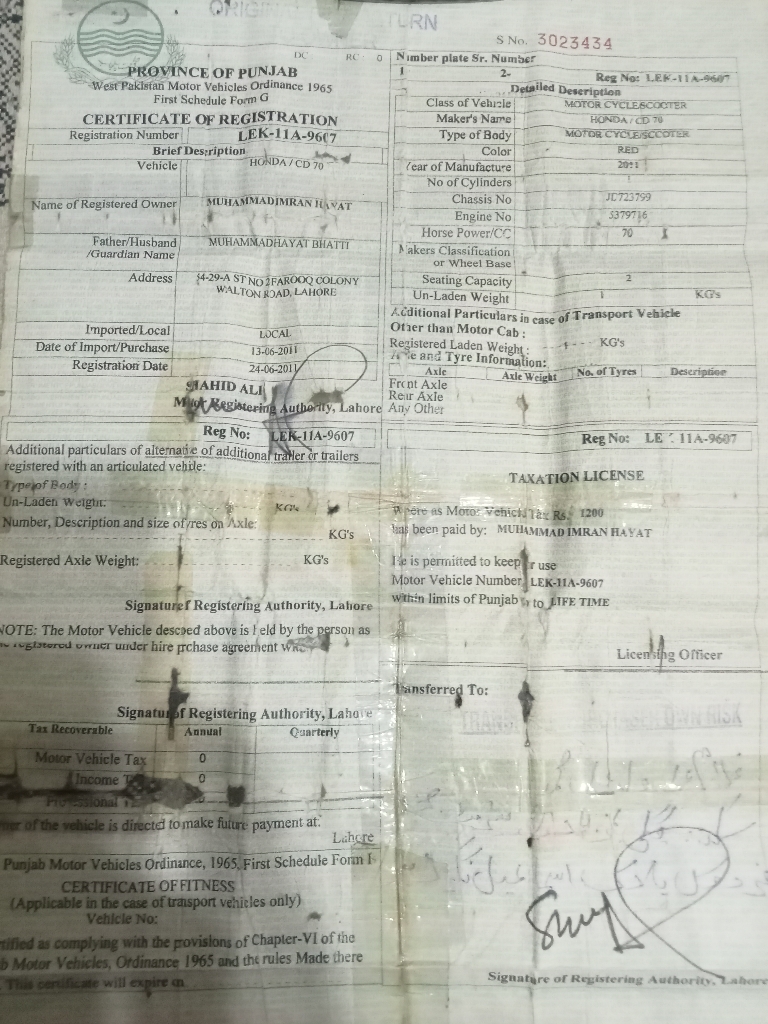 ORIGIN
TURN
S No. 3023434
DC RC: 0
PROVINCE OF PUNJAB
West Pakistan Motor Vehicles Ordinance 1965
First Schedule Form G
CERTIFICATE OF REGISTRATION
Registration Number LEK-11A-9607
Brief Description
Vehicle HONDA / CD 70
Name of Registered Owner MUHAMMAD IMRAN HAYAT
Father/Husband MUHAMMAD HAYAT BHATTI
/Guardian Name
Address 54-29-A ST NO 2 FAROOQ COLONY
WALTON ROAD, LAHORE
Imported/Local LOCAL
Date of Import/Purchase 13-06-2011
Registration Date 24-06-2011
SHAHID ALI
Registering Authority, Lahore
Reg No: LEK-11A-9607
Additional particulars of alternative of additional trailer or trailers
registered with an articulated vehicle:
Type of Body :
Un-Laden Weight: KG's
Number, Description and size of yres on Axle:
KG's
Registered Axle Weight: KG's
Signature f Registering Authority, Lahore
NOTE: The Motor Vehicle desc ed above is held by the person as
registered owner under hire p chase agreement
Signatur of Registering Authority, Lahore
Tax Recoverable Annual Quarterly
Motor Vehicle Tax 0
Income T 0
Professional
of the vehicle is directed to make future payment at:
Lahore
Punjab Motor Vehicles Ordinance, 1965, First Schedule Form I
CERTIFICATE OF FITNESS
(Applicable in the case of transport vehicles only)
Vehicle No:
tified as complying with the provisions of Chapter-VI of the
b Motor Vehicles, Ordinance 1965 and the rules Made there
This certificate will expire on
Number plate Sr. Number
1 2- Reg No: LEK-11A-9607
Detailed Description
Class of Vehicle MOTOR CYCLE/SCOOTER
Maker's Name HONDA / CD 70
Type of Body MOTOR CYCLE/SCOOTER
Color RED
Year of Manufacture 2011
No of Cylinders 1
Chassis No JC723799
Engine No 5379716
Horse Power/CC 70
Makers Classification
or Wheel Base
Seating Capacity 2
Un-Laden Weight 1 KG's
Additional Particulars in case of Transport Vehicle
Other than Motor Cab :
Registered Laden Weight : KG's
Axle and Tyre Information:
Axle Axle Weight No. of Tyres Description
Front Axle
Rear Axle
Any Other
Reg No: LE 11A-9607
TAXATION LICENSE
Where as Motor Vehicle Tax Rs. 1200
has been paid by: MUHAMMAD IMRAN HAYAT
He is permitted to keep r use
Motor Vehicle Number LEK-11A-9607
within limits of Punjab to LIFE TIME
Licensing Officer
Transferred To:
TRANS OWN RISK
Signature of Registering Authority, Lahore